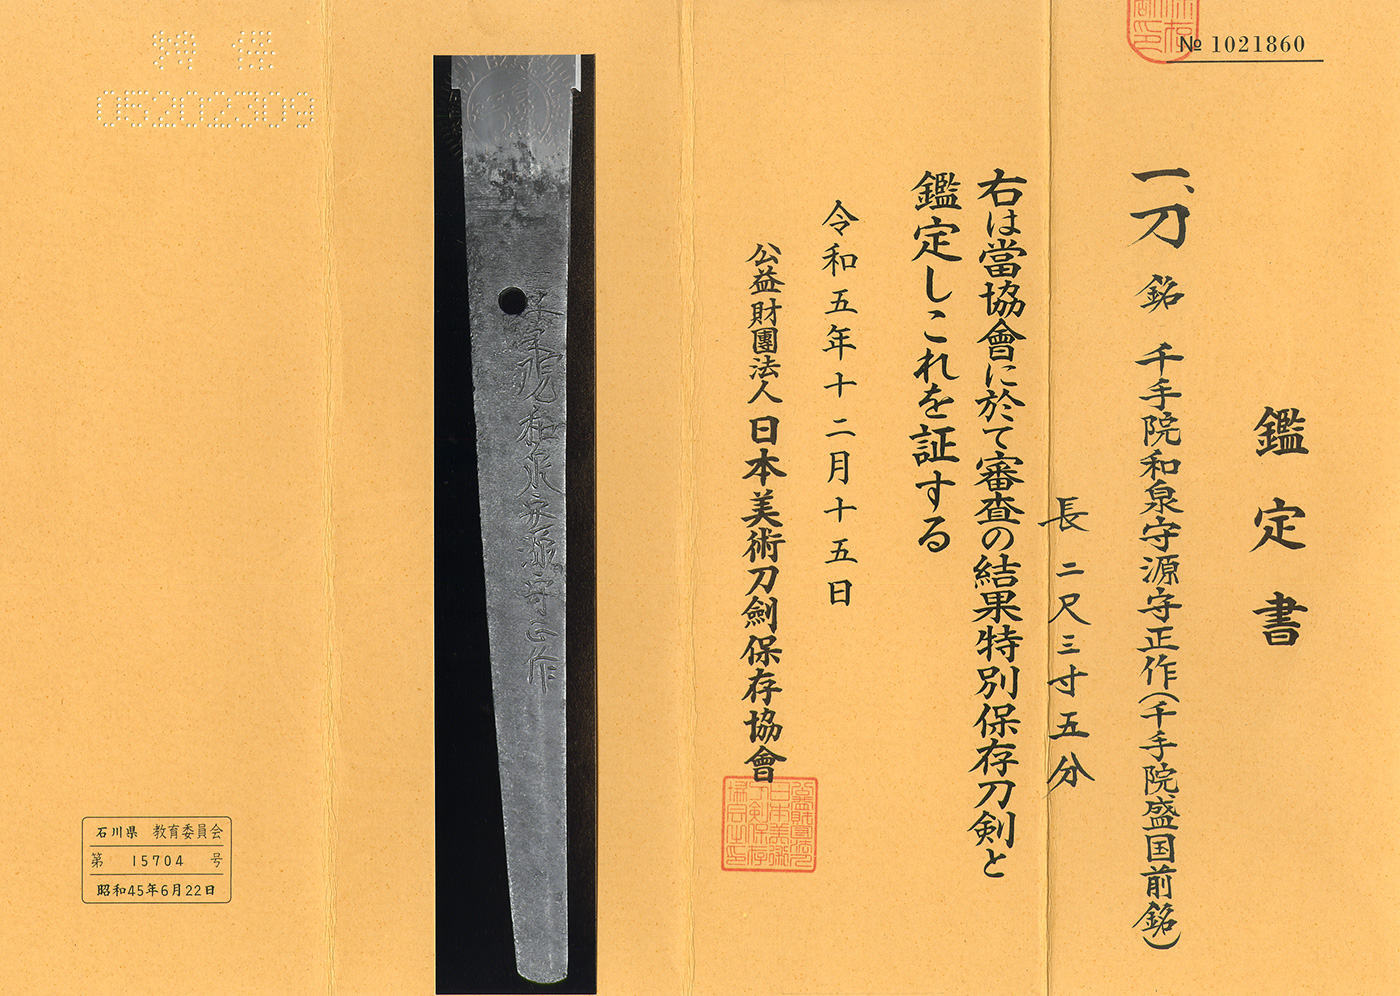 № 1021860
鑑定書
一、刀 銘 千手院和泉守源守正作(千手院盛国前銘)
長 二尺三寸五分
右は當協會に於て審査の結果特別保存刀剣と
鑑定しこれを証する
令和五年十二月十五日
公益財團法人 日本美術刀劍保存協會
千手院和泉守源守正作
05202309
石川県 教育委員会
第 15704 号
昭和45年6月22日